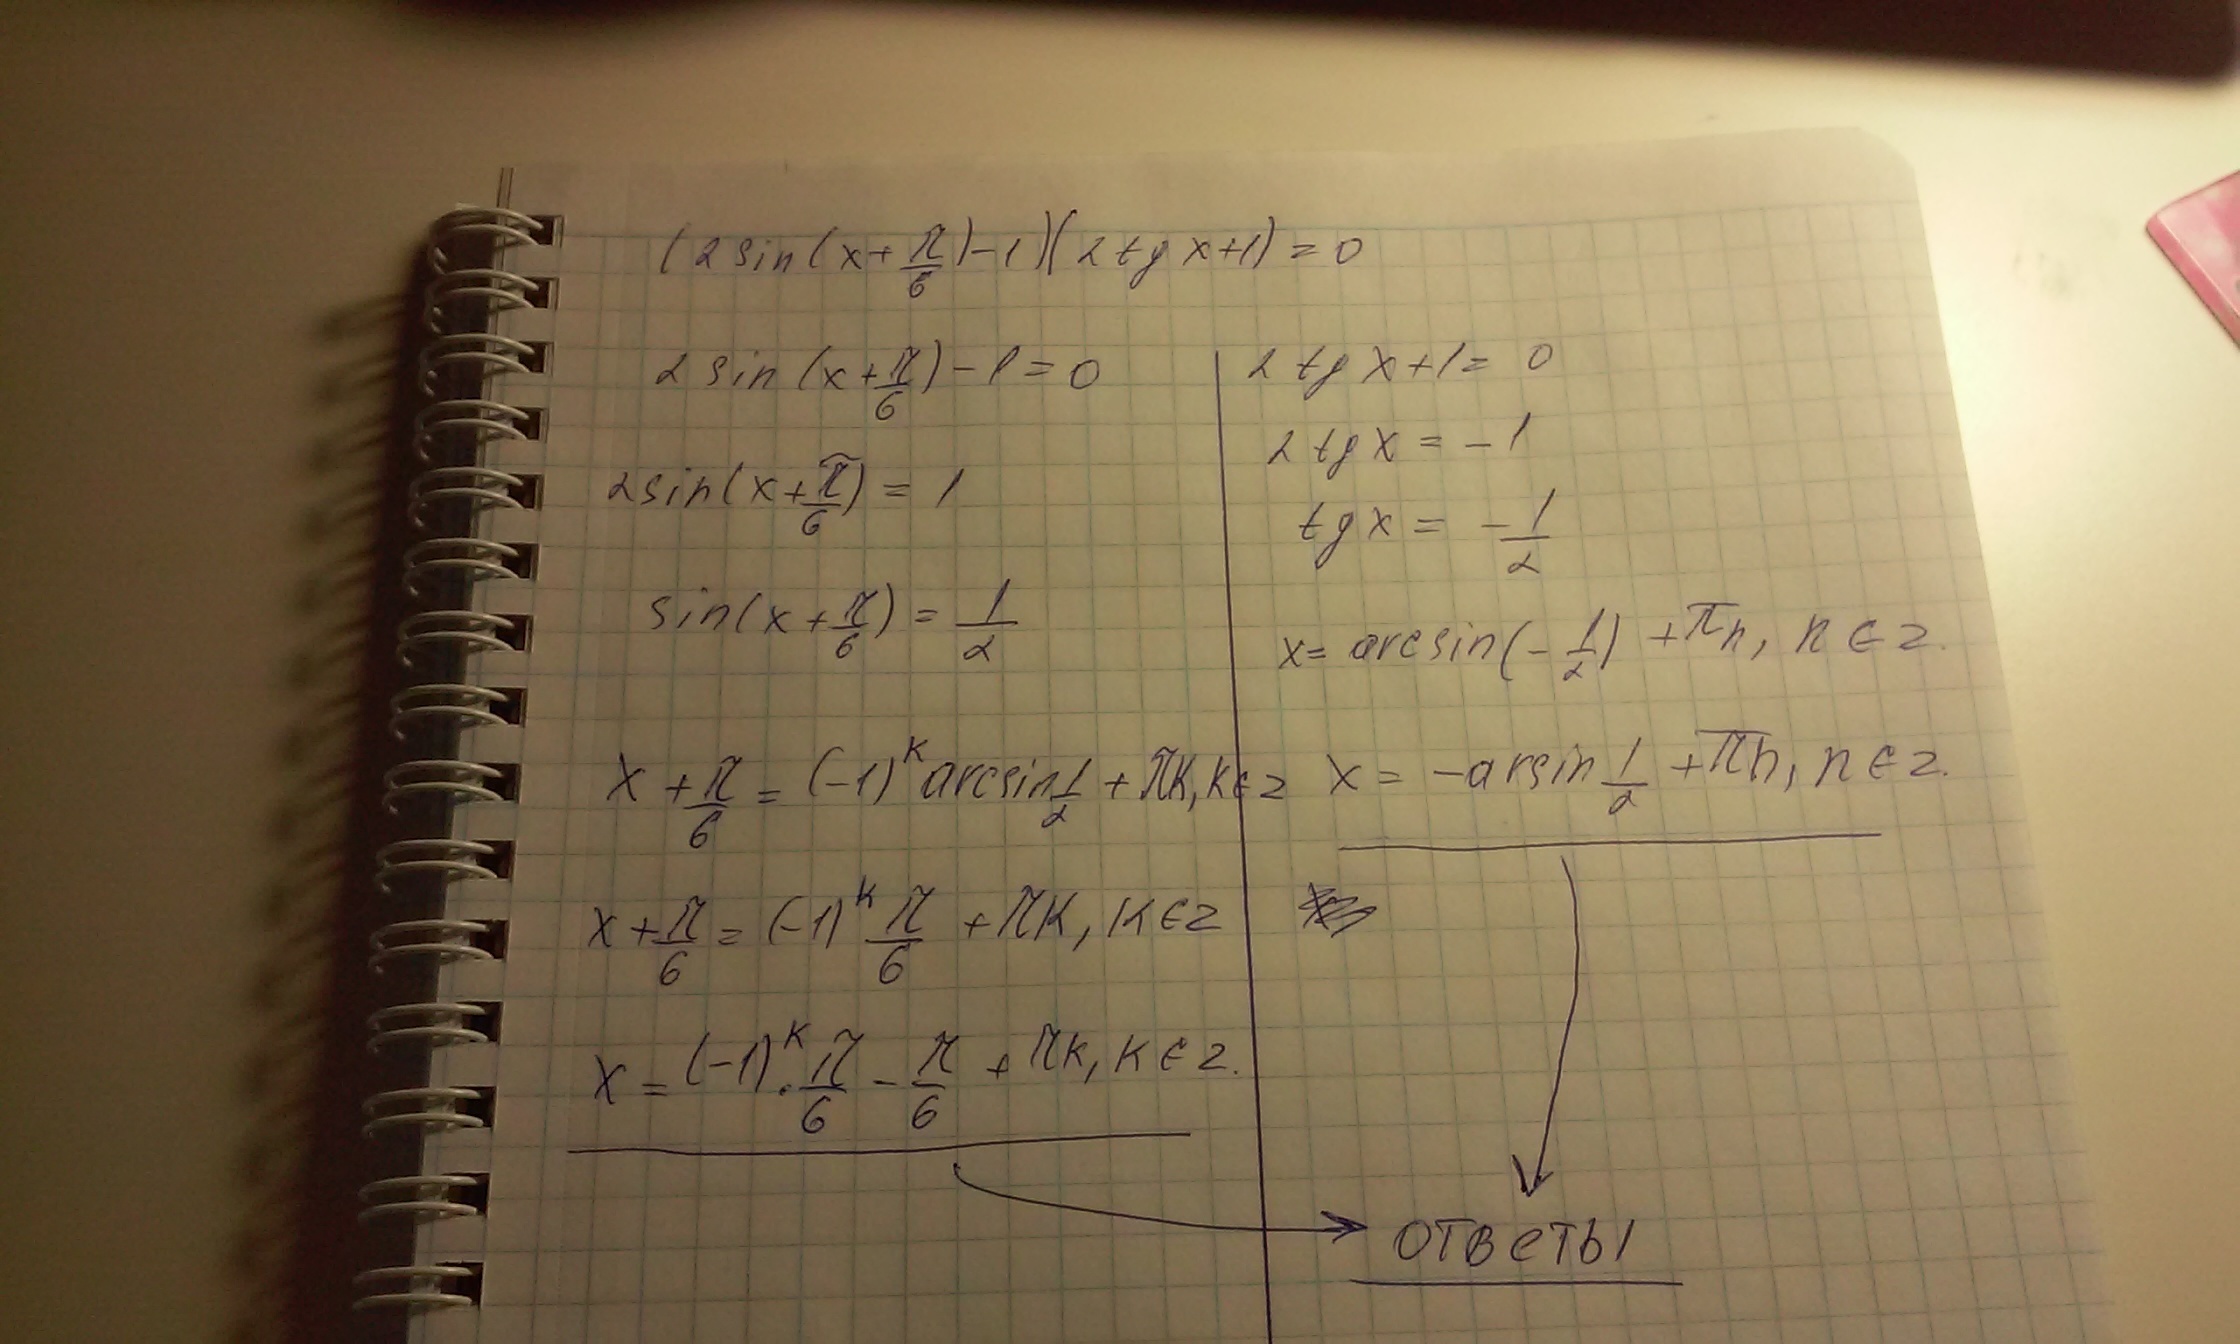 (2sin(x+π/6)-1)(2tgx+1)=0
2sin(x+π/6)-1=0
2sin(x+π/6)=1
sin(x+π/6)=1/2
x+π/6=(-1)^k arcsin 1/2+πk, k∈z
x+π/6=(-1)^k π/6+πk, k∈z
x=(-1)^k·π/6-π/6+πk, k∈z.
2tgx+1=0
2tgx=-1
tgx=-1/2
x=arcsin(-1/2)+πn, n∈z.
x=-arsin 1/2+πn, n∈z.
ответы